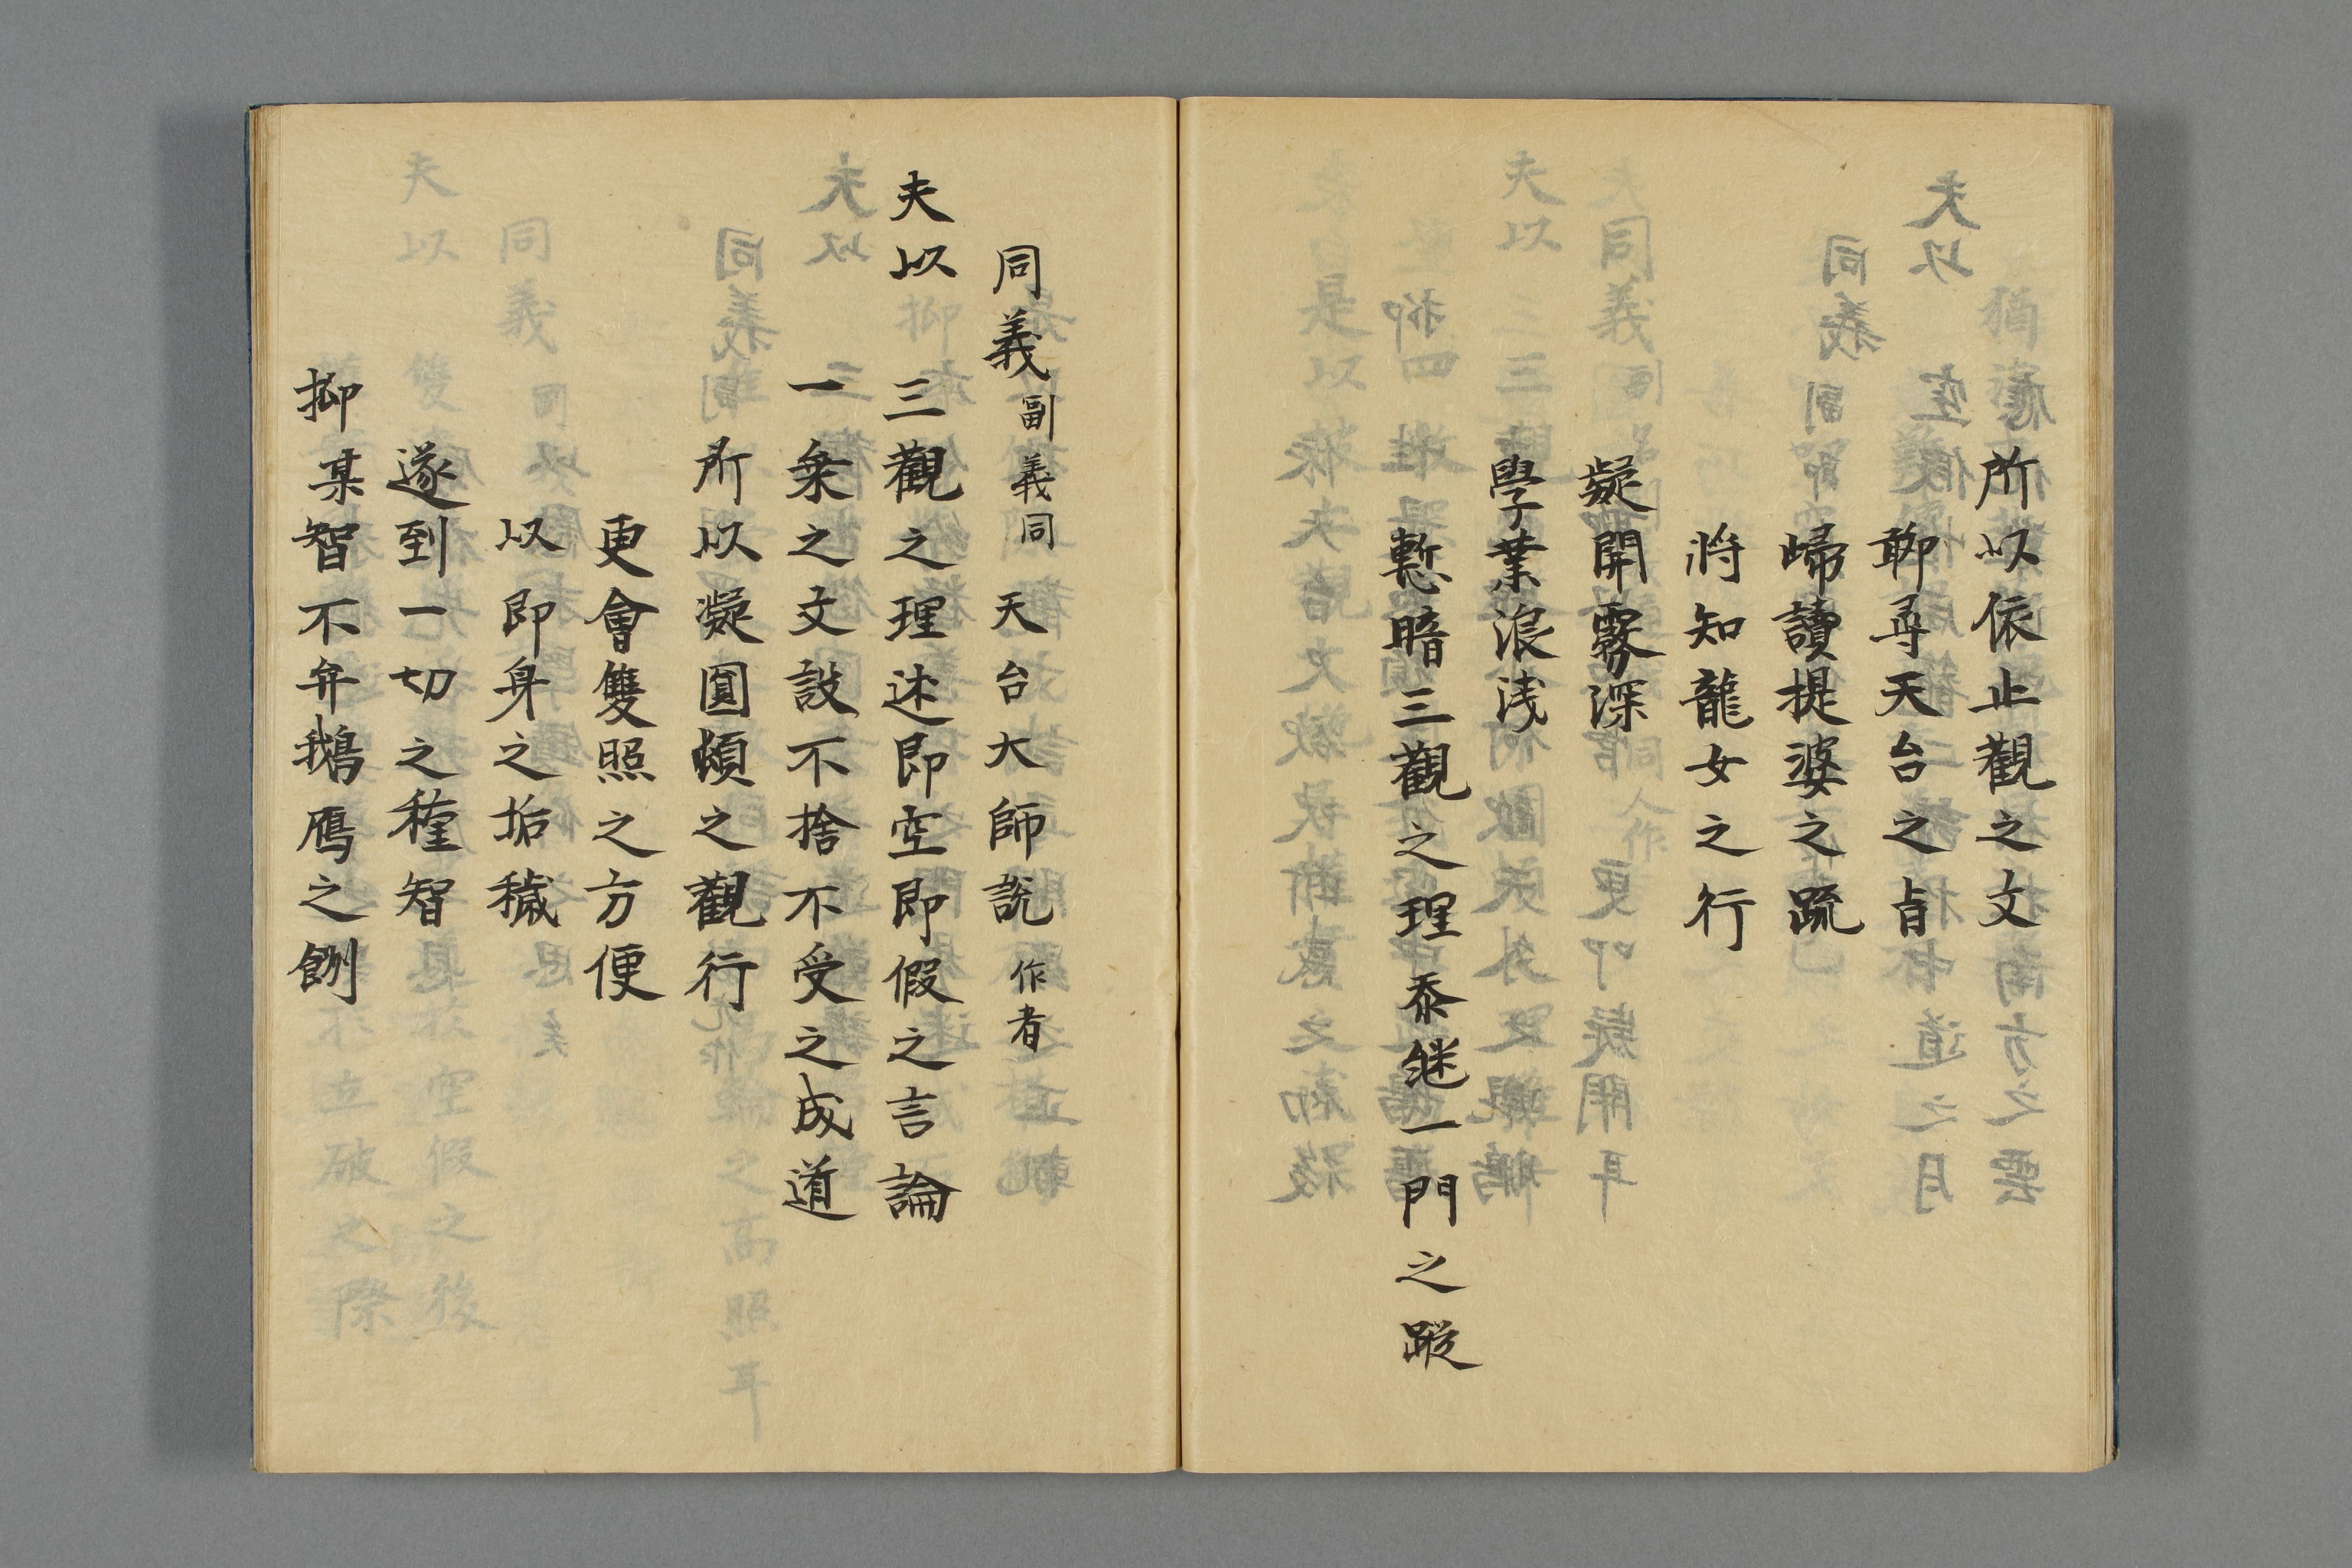 所以依止觀之文
聊尋天台之旨
歸讀提婆之疏
將知龍女之行
疑開霧深
學業浪浅
慙暗三觀之理忝継一門之蹤
同義副義同天台大師説作者
夫以三觀之理述即空即假之言論
一乗之文談不捨不受之成道
所以凝圓頓之觀行
更會雙照之方便
以即身之垢穢
遂到一切之種智
抑某智不弁鵝鴈之